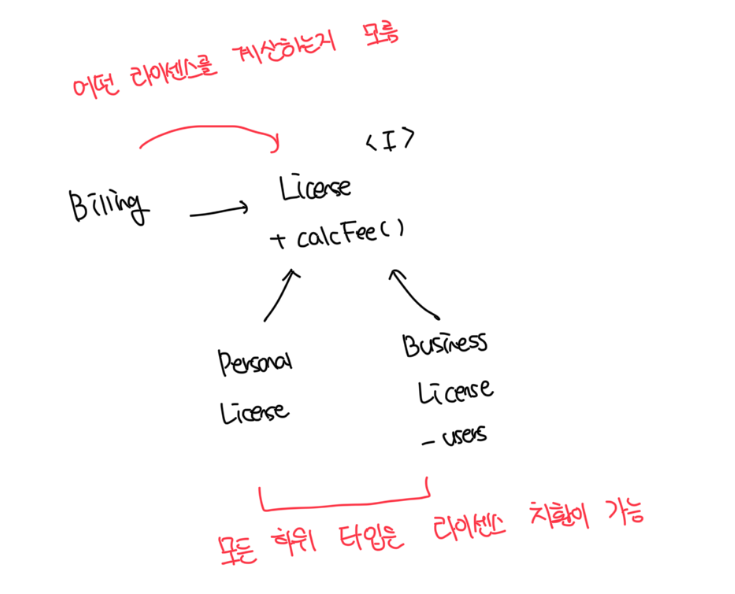 어떤 라이센스를 계산하는지 모름
<I>
Billing
License
+ calcFee()
Personal
License
Business
License
- users
모든 하위 타입은 라이센스 치환이 가능